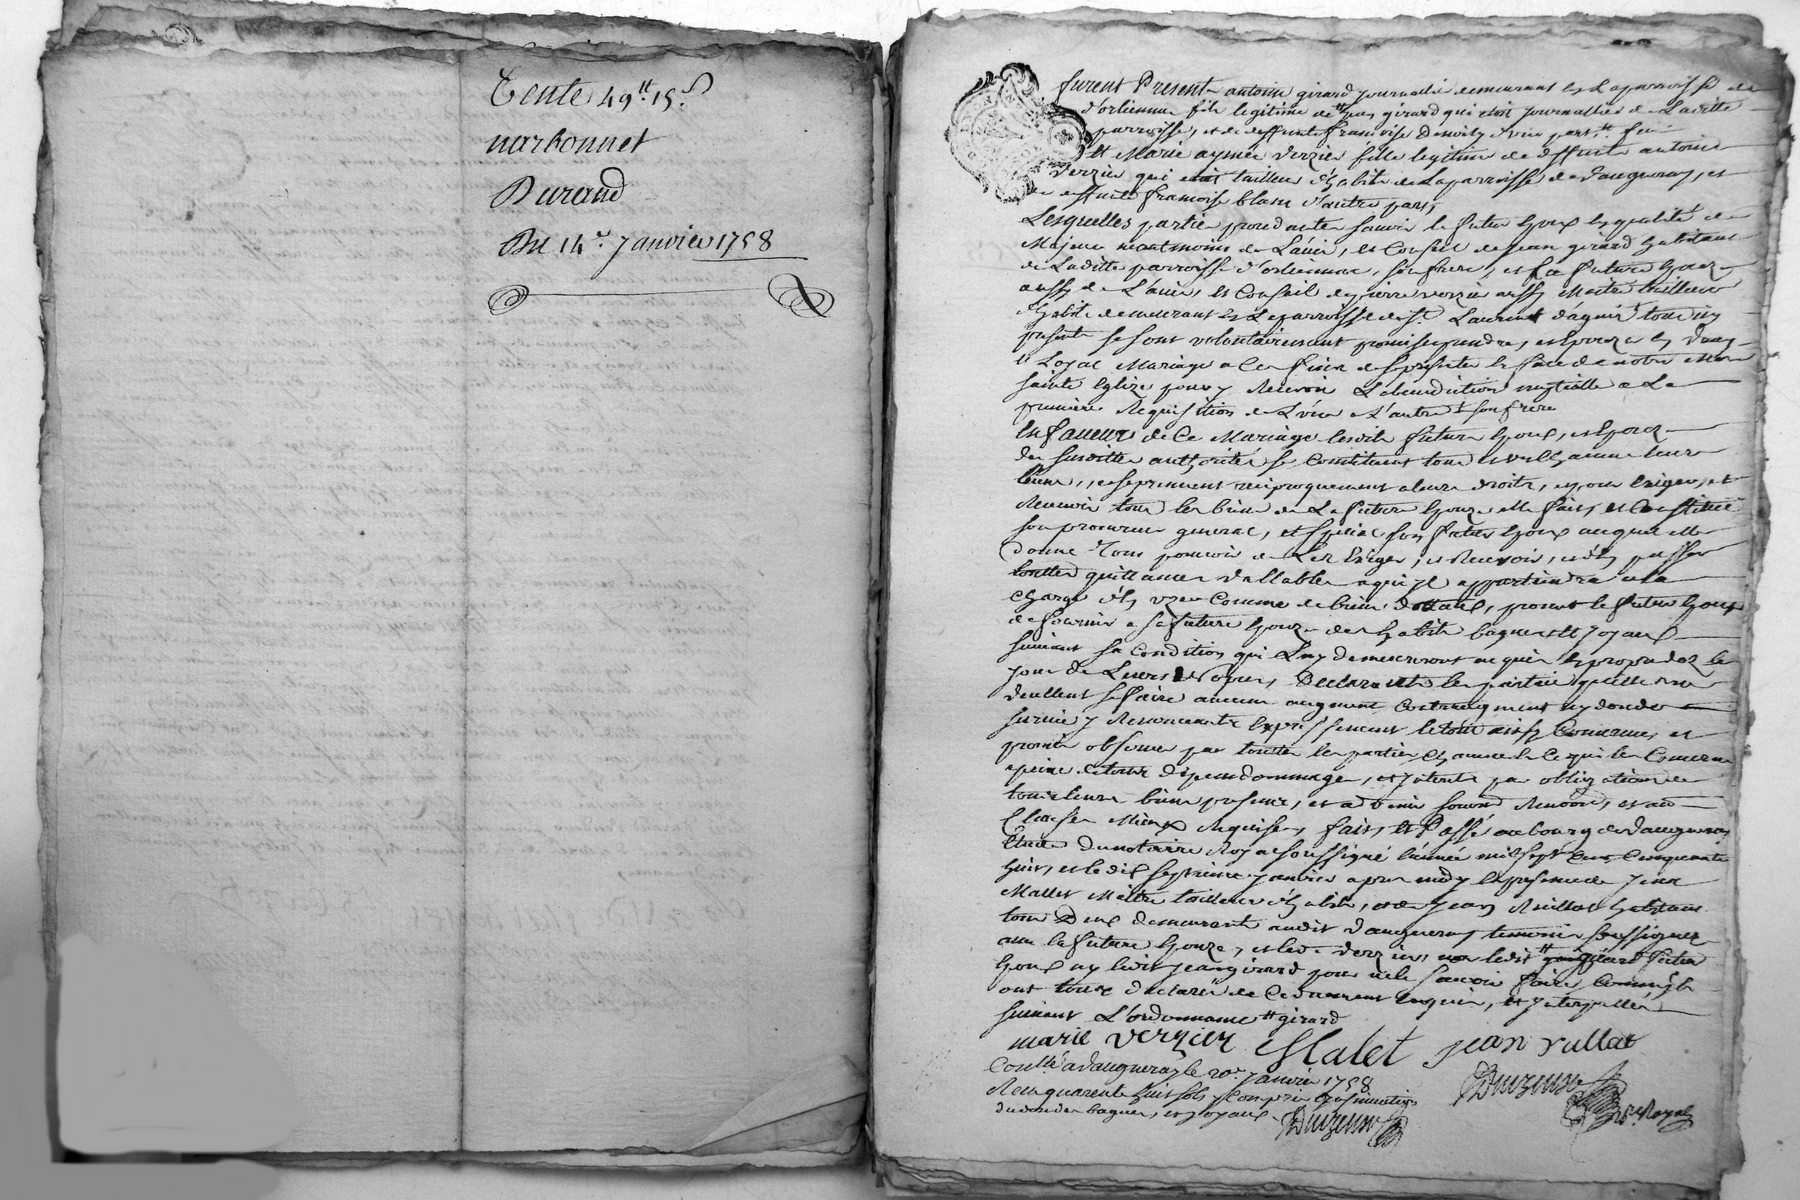 Vente 49tt 15s
narbonnet
Durand
Du 14e Janvier 1758
furent Presents antoine girard journallier demeurant en La parroisse de
d'orlienne fils legitime de girard qui etoit journallier de Laditte
parroisse, et de deffunte francoise d'une part. Et
Marie aymée verzier fille legitime de deffunt antoine
verzier qui etoit tailleur d'habits de La parroisse de vaugneray, et
de deffunte francoise blanc d'autre part,
Lesquelles parties procedantes scavoir le futur Epoux en qualité de
Majeur neantmoins de L'avis, et Conseil de jean girard habitant
de Laditte parroisse d'orlienne, son frere, et La future Epouze
aussy de L'avis, et Conseil de pierre verzier aussy Maitre tailleur
d'habits demeurant en La parroisse de St. Laurent d'agnis tous icy
presents se sont volontairement promis se prendre, et Epouzer en vray
et Loyal Mariage a Ces fins de se presenter en face de notre mere
sainte Eglise pour y Recevoir La benediction nuptialle a La
premiere Requisition de L'un a L'autre son frere
En faveur de Ce Mariage lesdits futurs Epoux, et Epouze
des susdittes authorités se Constituent tous et un Chacun leurs
biens, et se prennent reciproquement a leurs droits, et pour Exiger, et
Recevoir tous les biens de La future Epouze elle fait, et Constitue
son procureur general, et special son futur Epoux auquel elle
donne Tout pouvoir de Les Exiger, et Recevoir, et d'en passer
touttes quittances vallables a qui il appartiendra a la
charge d'en uzer Comme de biens dottaux, promet le futur Epoux
de fournir a sa future Epouze des habits bagues et Joyaux
suivant sa Condition qui Luy demeureront acquis en propre des le
jour de Leurs Nopces, Declarants les parties qu'elles ne
veullent se faire aucun augment Contraugment ny don de
survie y Renonceants Expressement le tout ainsy Convenu, et
promis observer par touttes les parties Chacune en Ce qui les Concerne
a peine de tous depens dommages, et interets par obligation de
tous leurs biens presents, et advenir soumis Renoncé, et au
Clauses Mieux Requises, fait, et Passé au bourg de vaugneray
Etude du notaire Royal soussigné l'année mil sept Cens Cinquante
huit, et le dix septieme Janvier apres midy En presence de Jean
Mallet Maitre tailleur d'habits, et de Jean Rullat habitans
tous Deux demeurants audit vaugneray temoins soussignez
avec la future Epouze, et led. verzier, non ledit girard futur
Epoux ny ledit jean girard pour ne le scavoir faire Comme ils
ont tous declaré de Ce duement Enquis, et Interpellés
suivant L'ordonnance girard
marie verzier Malet jean rullat
Conllé a vaugneray le 20e Janvier 1758
Reçu quarente huit sols y Compris L'insinuation
du don des bagues, et joyaux
Nre Royal